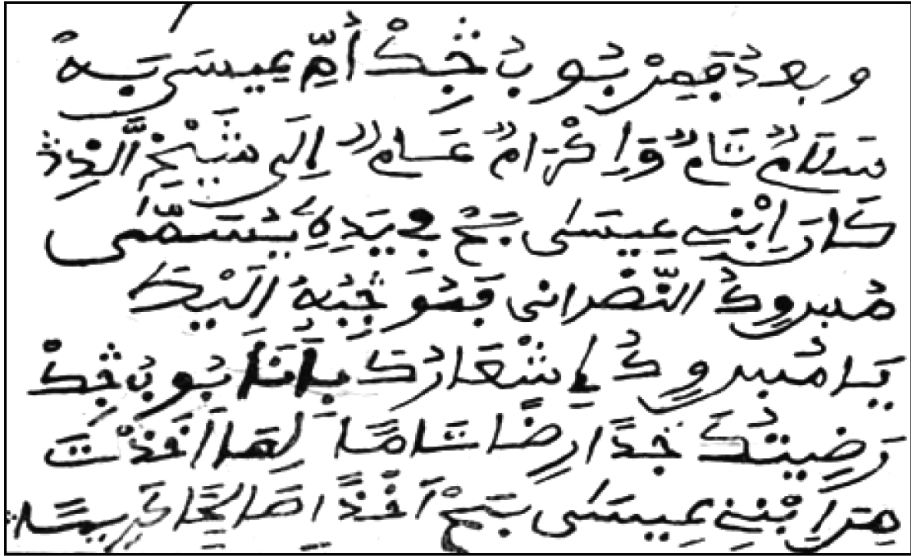 وبعد فَمِنْ بُوبُ جِكْ أُمِّ عِيسَى بَهْ
سَلَامٌ تَامٌ وَإِكْرَامٌ عَامٌ إِلَى شَيْخِ الَّذِي
كَانَ اِبْنِي عِيسَى بَحْ فِي يَدِهِ يُسَمَّى
مُبروكُ النَّصْرانى فَهُوَ جِبُهُ اِلَيْكَ
يَا مُبروكُ إِشْعَارُكَ بِأَنَا بُوبُ جِكْ
رَضِيتُكَ جِدًّا رِضًا تَامًا لِمَا اَخَذْتَ
مِنَ اِبْنِي عِيسَى بَحْ اَخْذًا صَالِحًا كَرِيمًا